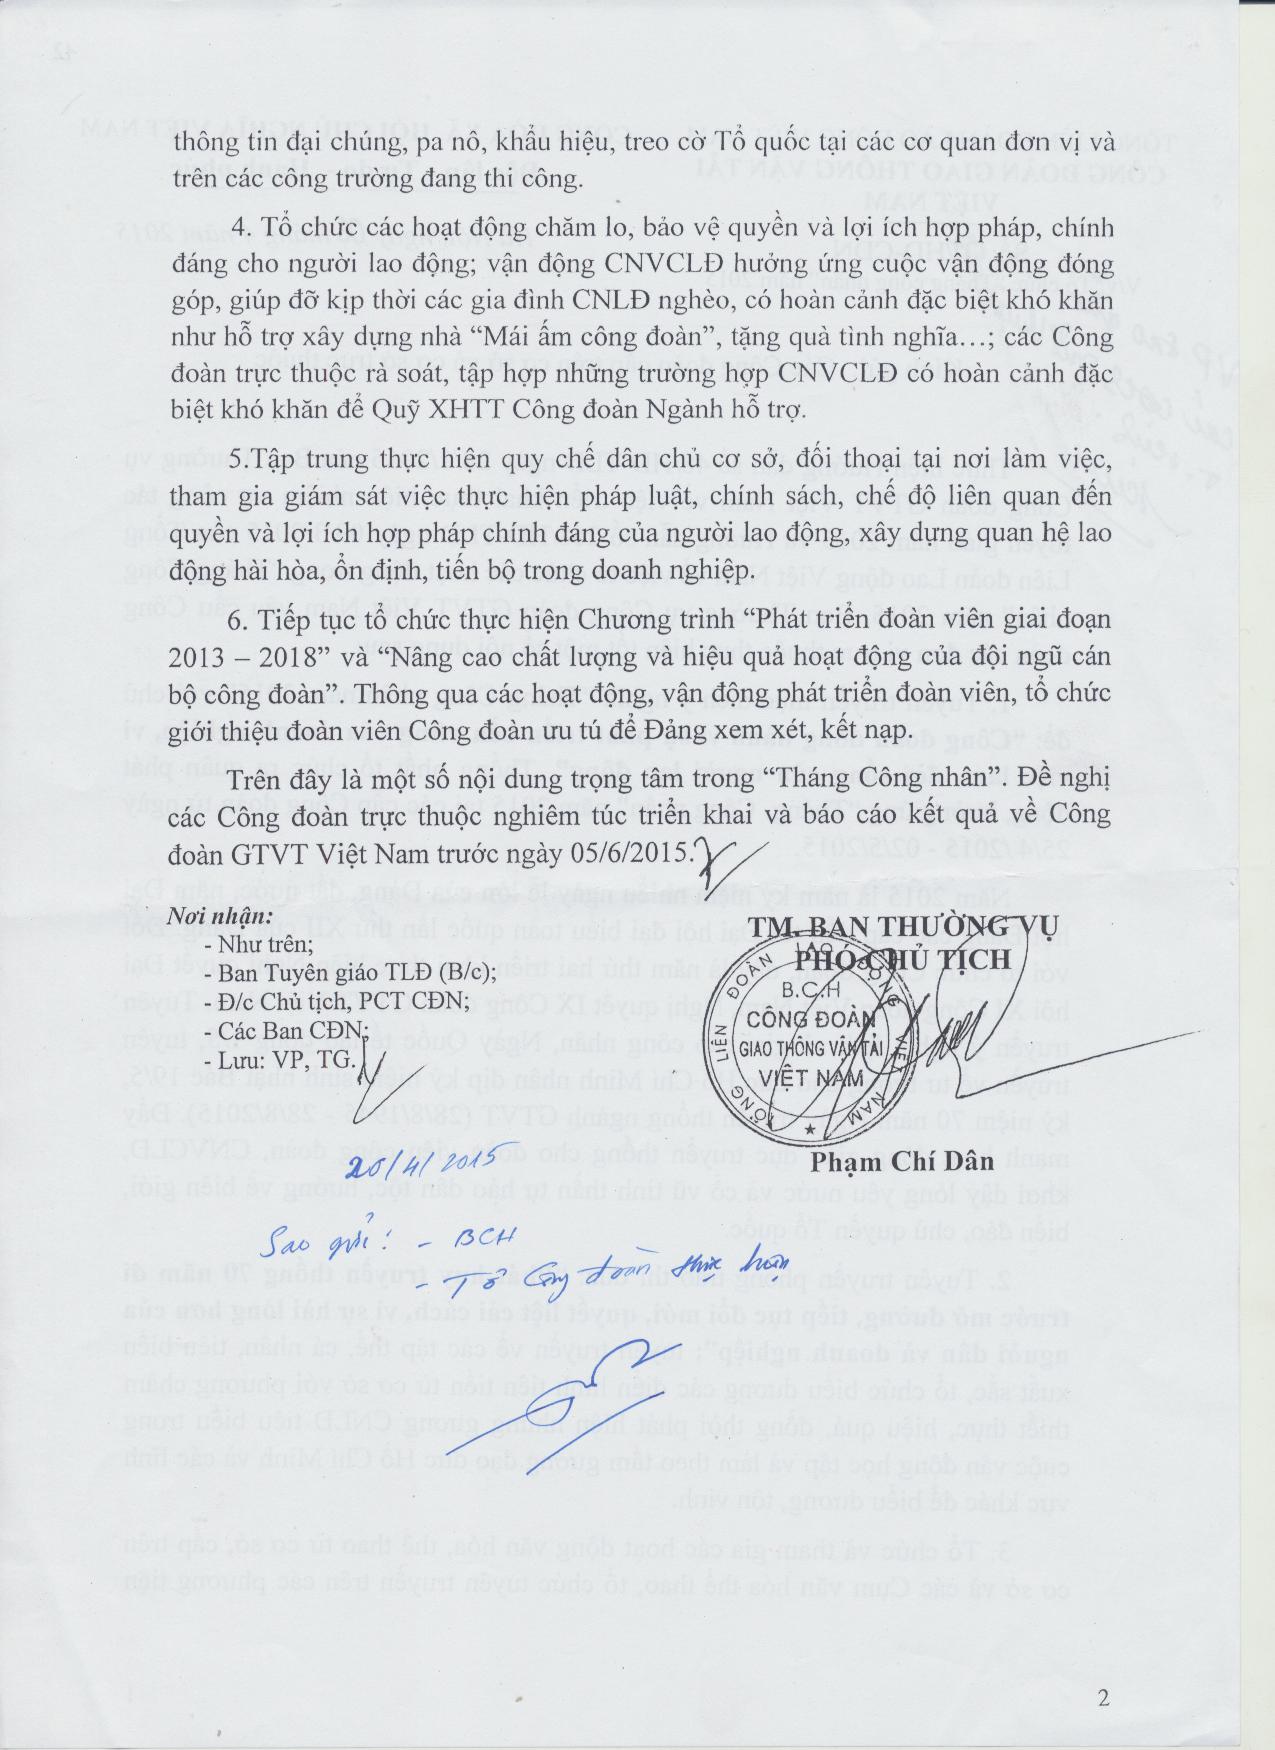 thông tin đại chúng, pa nô, khẩu hiệu, treo cờ Tổ quốc tại các cơ quan đơn vị và
trên các công trường đang thi công.
4. Tổ chức các hoạt động chăm lo, bảo vệ quyền và lợi ích hợp pháp, chính
đáng cho người lao động; vận động CNVCLĐ hưởng ứng cuộc vận động đóng
góp, giúp đỡ kịp thời các gia đình CNLĐ nghèo, có hoàn cảnh đặc biệt khó khăn
như hỗ trợ xây dựng nhà “Mái ấm công đoàn”, tặng quà tình nghĩa…; các Công
đoàn trực thuộc rà soát, tập hợp những trường hợp CNVCLĐ có hoàn cảnh đặc
biệt khó khăn để Quỹ XHTT Công đoàn Ngành hỗ trợ.
5.Tập trung thực hiện quy chế dân chủ cơ sở, đối thoại tại nơi làm việc,
tham gia giám sát việc thực hiện pháp luật, chính sách, chế độ liên quan đến
quyền và lợi ích hợp pháp chính đáng của người lao động, xây dựng quan hệ lao
động hài hòa, ổn định, tiến bộ trong doanh nghiệp.
6. Tiếp tục tổ chức thực hiện Chương trình “Phát triển đoàn viên giai đoạn
2013 – 2018” và “Nâng cao chất lượng và hiệu quả hoạt động của đội ngũ cán
bộ công đoàn”. Thông qua các hoạt động, vận động phát triển đoàn viên, tổ chức
giới thiệu đoàn viên Công đoàn ưu tú để Đảng xem xét, kết nạp.
Trên đây là một số nội dung trọng tâm trong “Tháng Công nhân”. Đề nghị
các Công đoàn trực thuộc nghiêm túc triển khai và báo cáo kết quả về Công
đoàn GTVT Việt Nam trước ngày 05/6/2015.
Nơi nhận:
- Như trên;
- Ban Tuyên giáo TLĐ (B/c);
- Đ/c Chủ tịch, PCT CĐN;
- Các Ban CĐN;
- Lưu: VP, TG.
TM. BAN THƯỜNG VỤ
PHÓ CHỦ TỊCH
TỔNG LIÊN ĐOÀN LAO ĐỘNG VIỆT NAM
B.C.H
CÔNG ĐOÀN
GIAO THÔNG VẬN TẢI
VIỆT NAM
Phạm Chí Dân
20/4/2015
Sao gửi: - BCH
- Tổ Công đoàn thực hiện
2